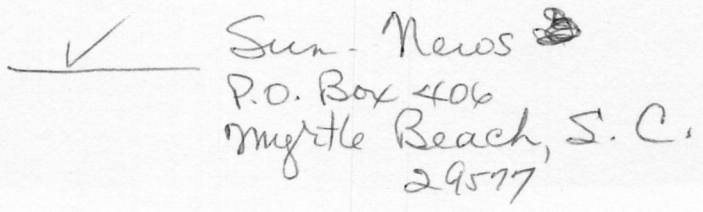 ✓ Sun-News
P.O. Box 406
Myrtle Beach, S.C.
29577